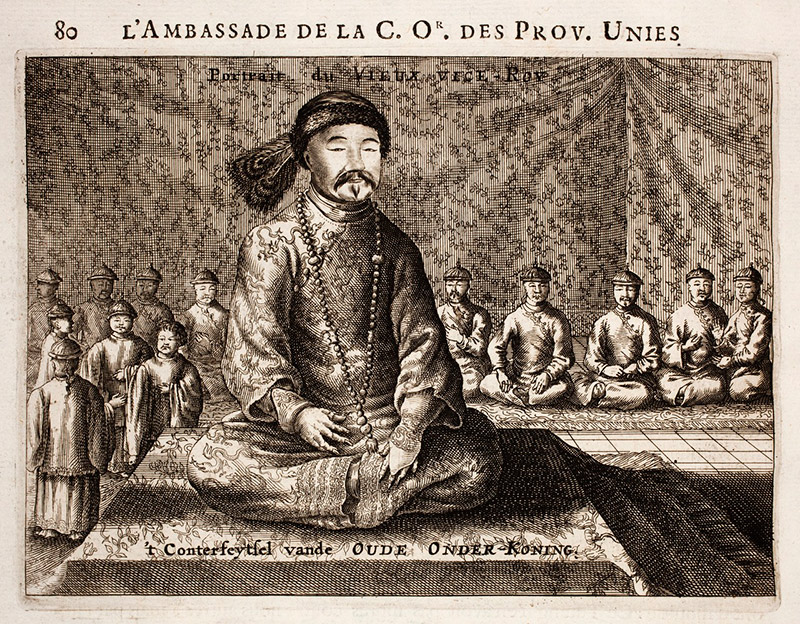 80 L'AMBASSADE DE LA C. OR. DES PROV. UNIES
Portrait du VIEUX VICE-ROY
't Conterfeytsel vande OUDE ONDER-KONING.